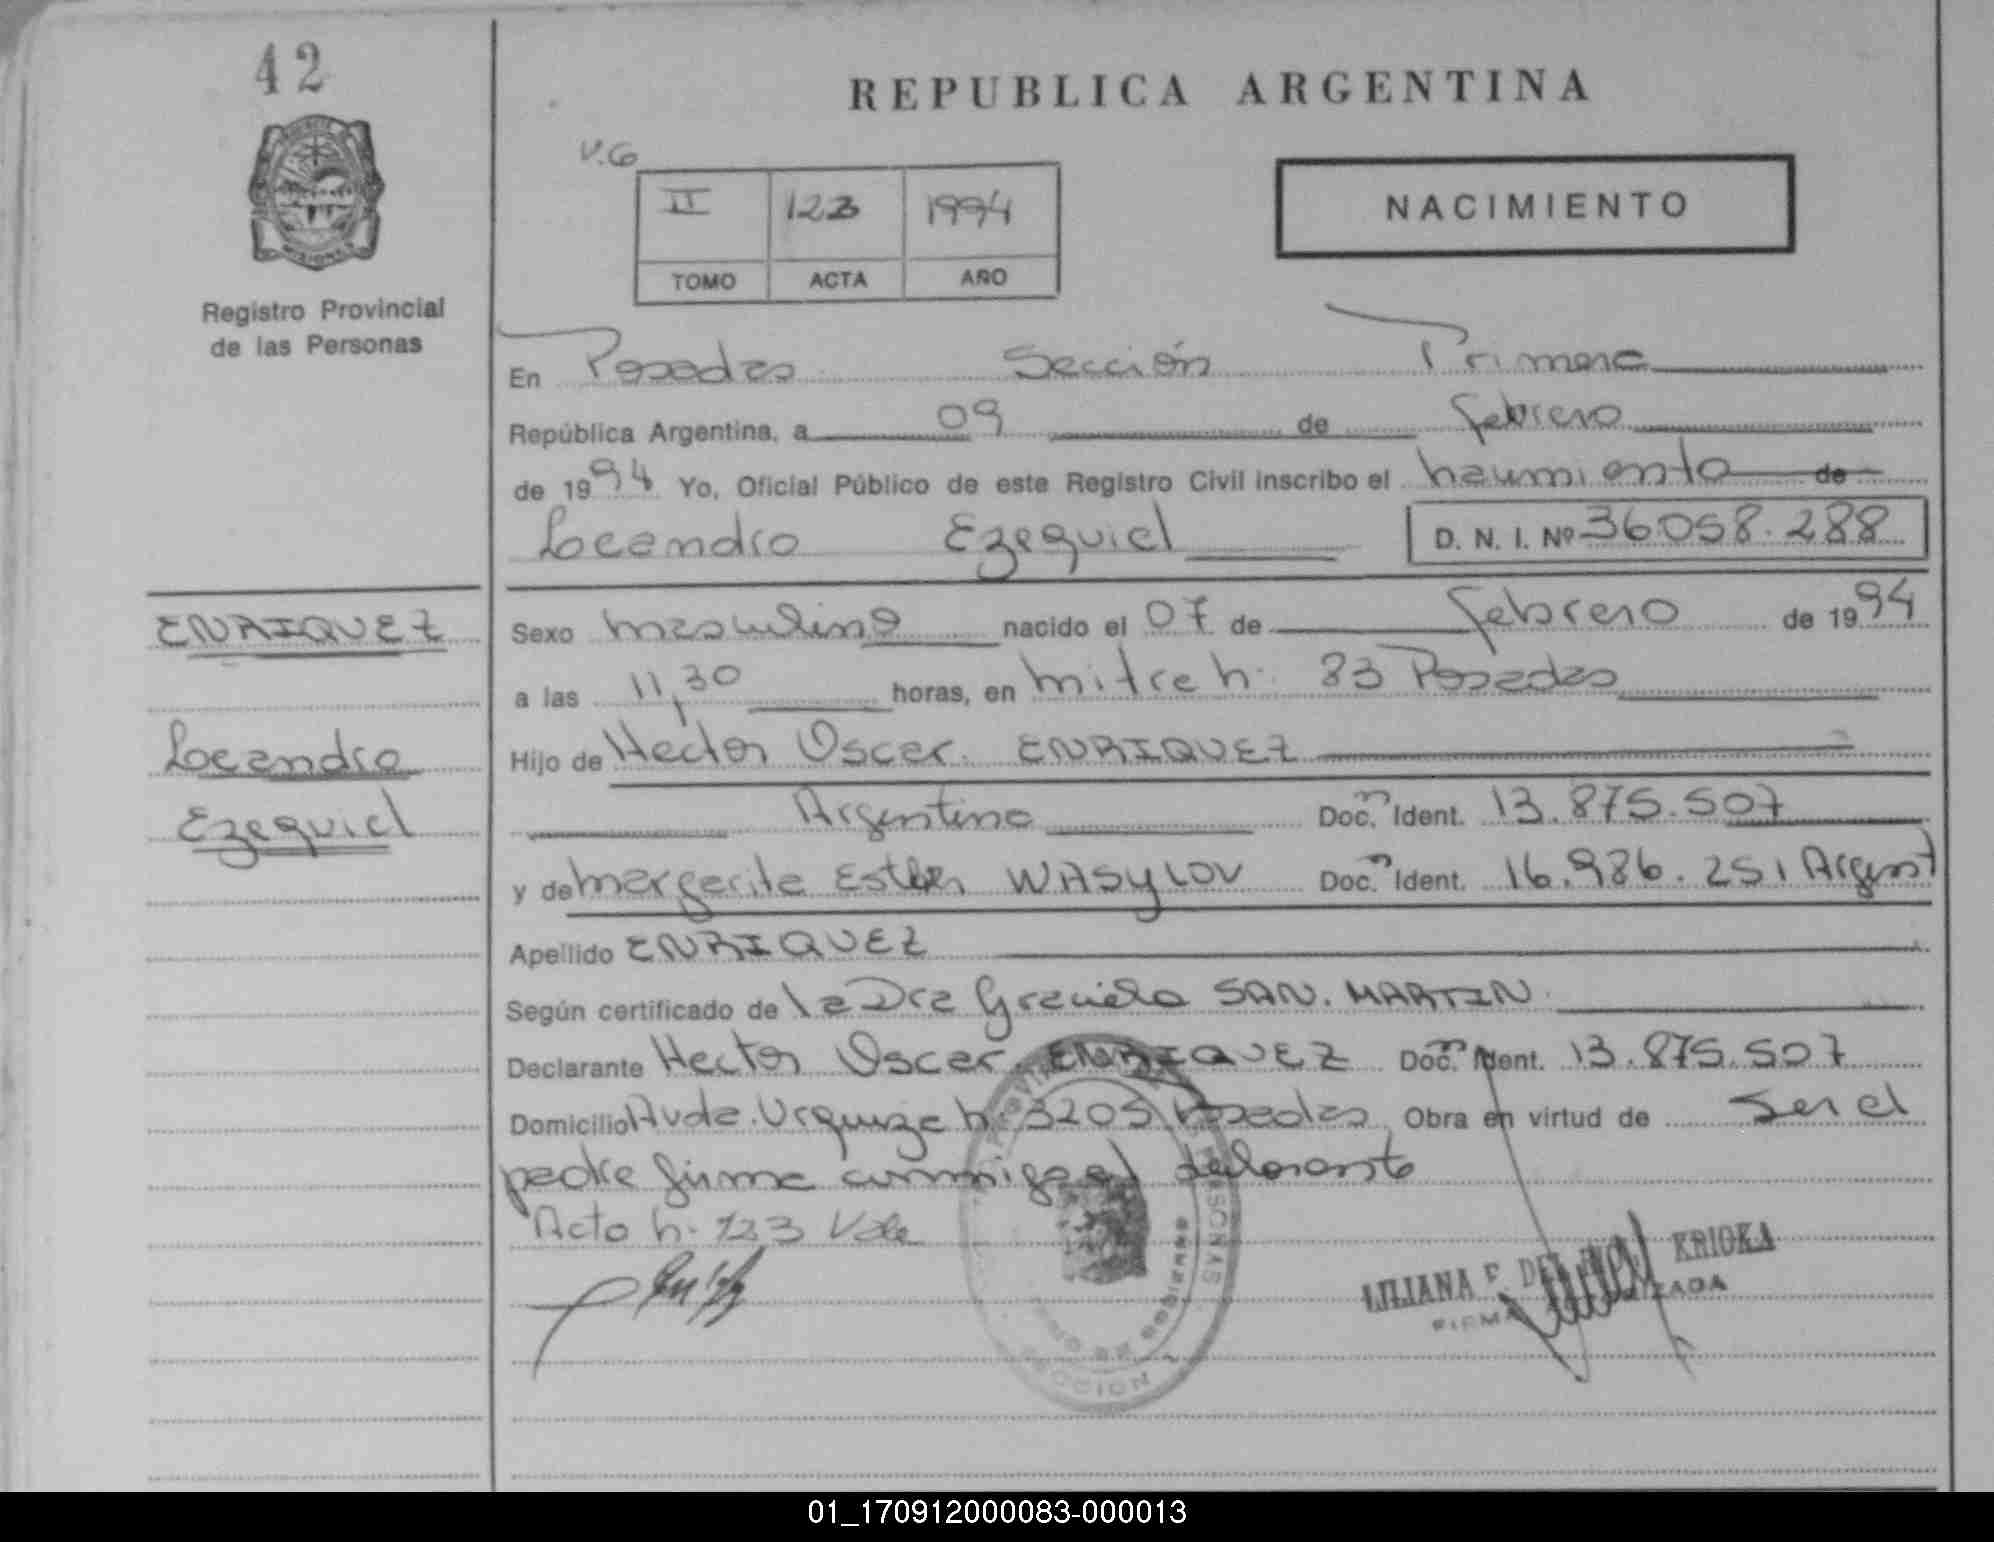 42
REPUBLICA ARGENTINA
V.G
II 123 1994
TOMO ACTA AÑO
NACIMIENTO
MISIONES
Registro Provincial
de las Personas
En Posadas Sección Primera
República Argentina, a 09 de febrero
de 1994 Yo, Oficial Público de este Registro Civil inscribo el nacimiento de
Leandro Ezequiel D. N. I. Nº 36058.288
ENRIQUEZ
Sexo masculino nacido el 07 de febrero de 1994
a las 11,30 horas, en mitre n. 83 Posadas
Leandro
Hijo de Hector Oscar. ENRIQUEZ
Ezequiel
Argentino Doc. Ident. 13.875.507
y de margarita Esther WASYLOV Doc. Ident. 16.986.251 Argent
Apellido ENRIQUEZ
Según certificado de la Dra Graciela SAN. MARTIN.
Declarante Hector Oscar ENRIQUEZ Doc. Ident. 13.875.507
Domicilio Avda. Urquiza n. 3205 Posadas Obra en virtud de Ser el
padre firma conmigo el declarante
Acta n. 123 Vale
LILIANA F. KRIOKA
FIRMA
SECCION
01_170912000083-000013